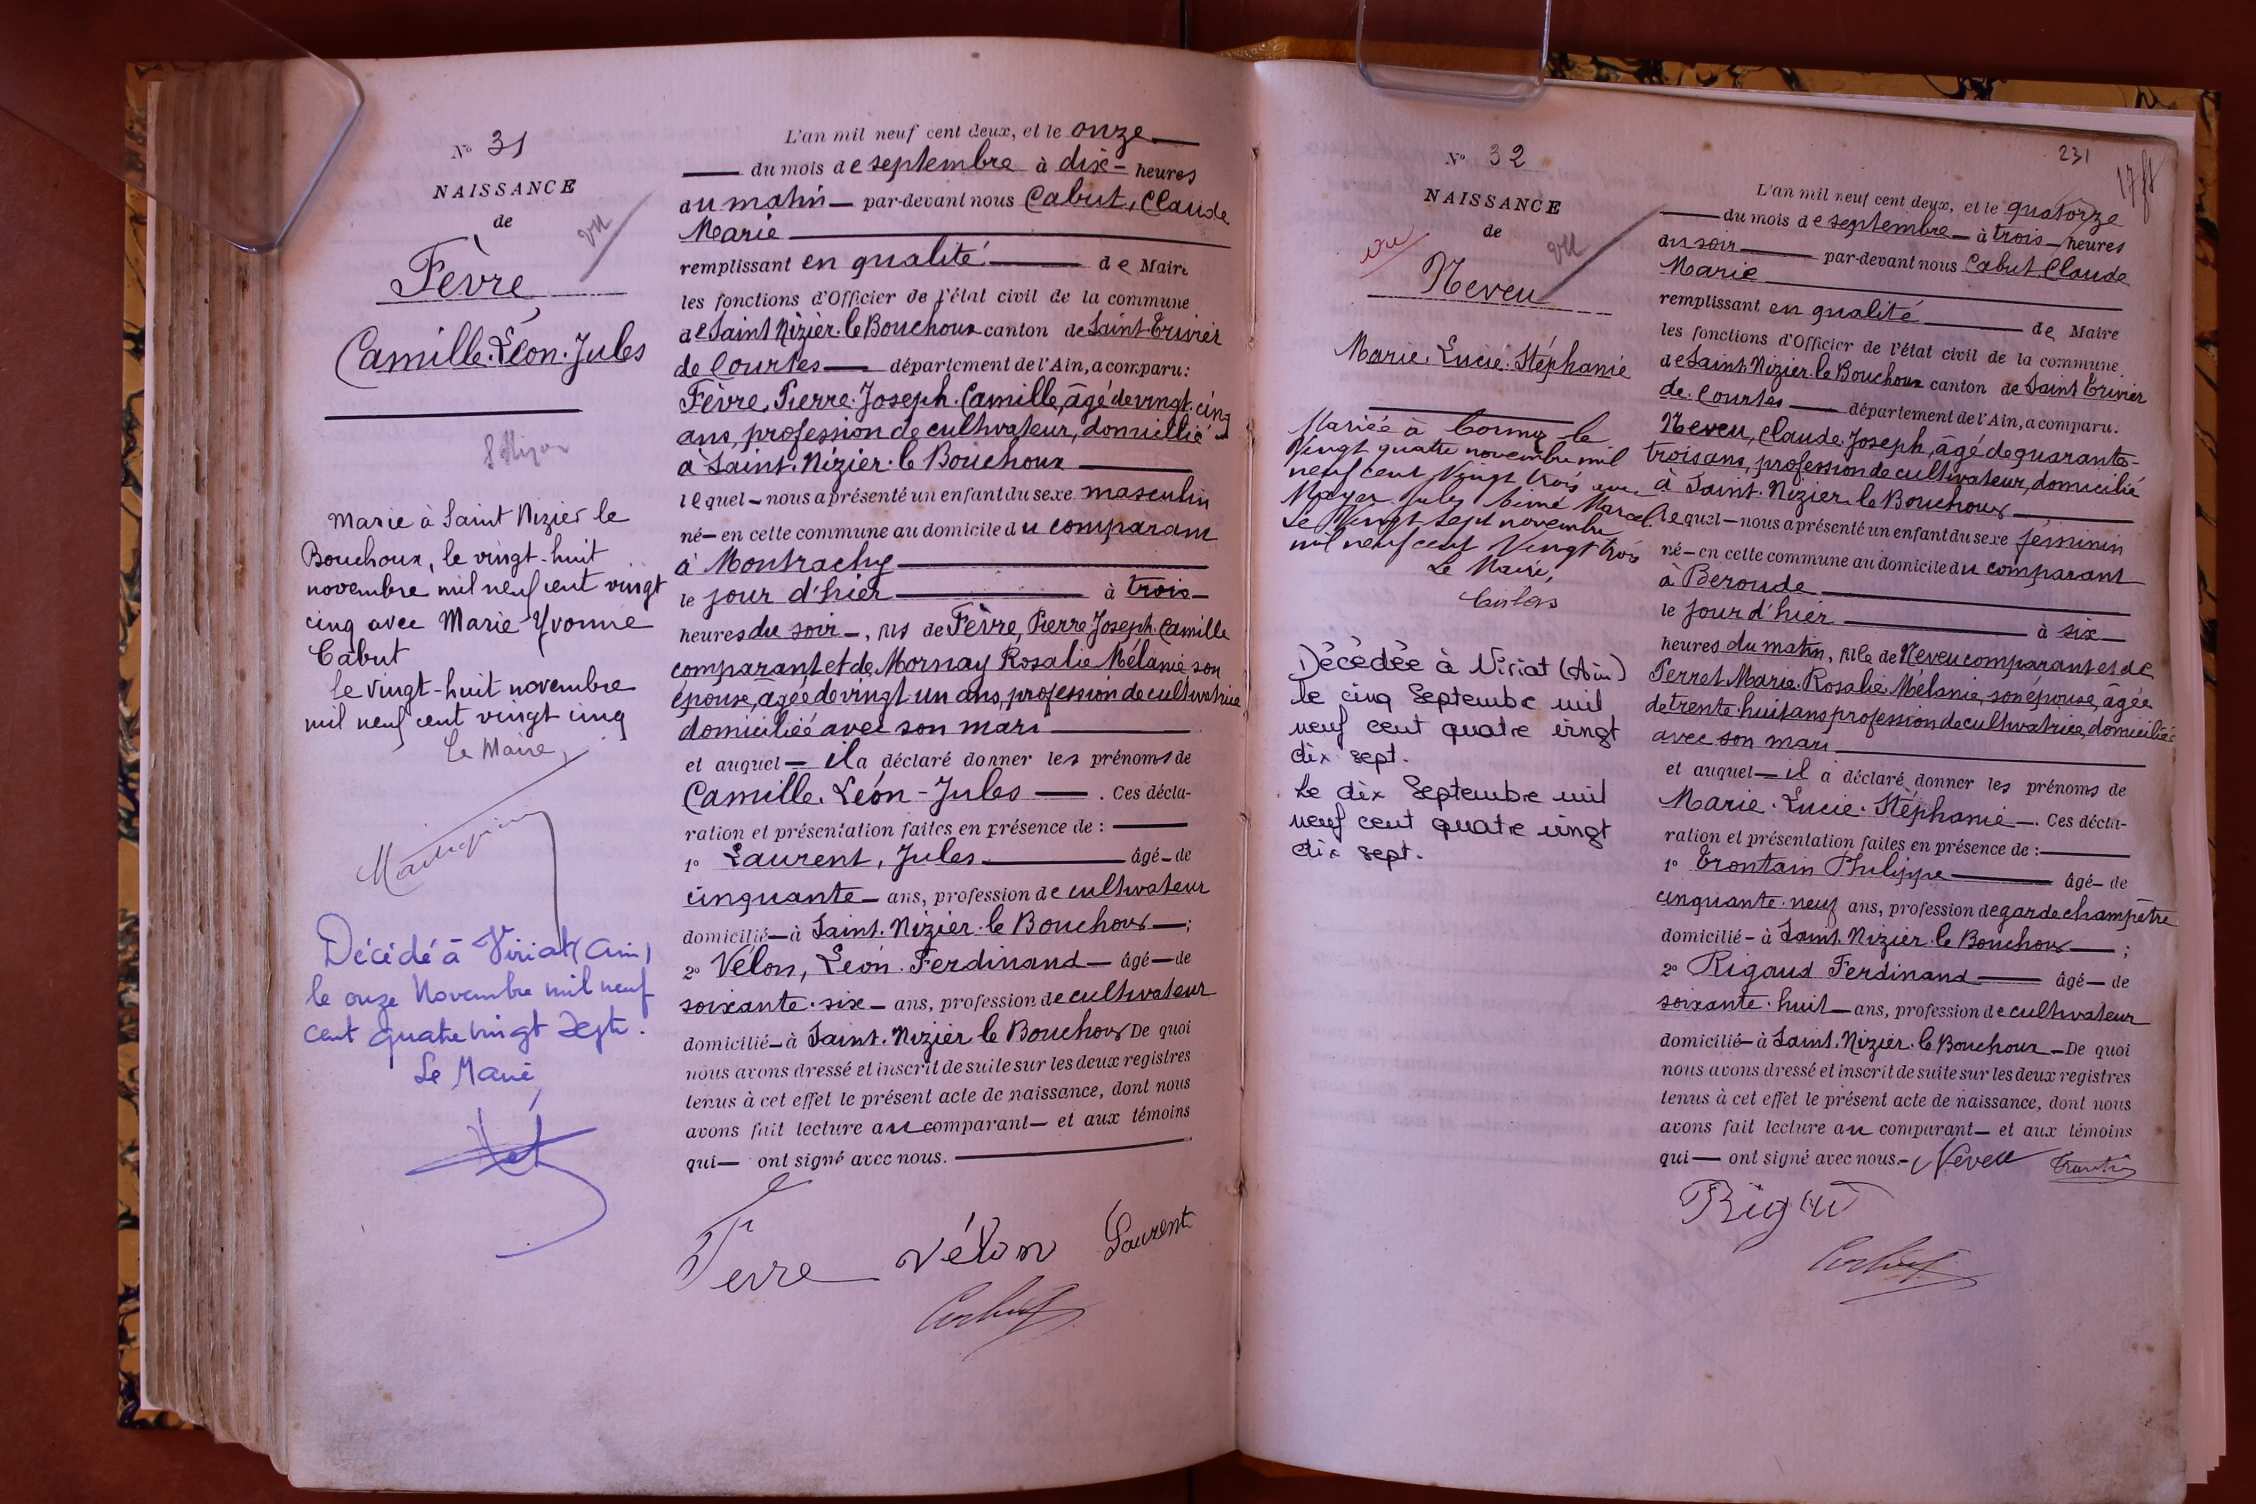 N° 31
NAISSANCE
de
vu
Fèvre
Camille. Léon. Jules
Marié à Saint Nizier le
Bouchoux, le vingt-huit
novembre mil neuf cent vingt
cinq avec Marie Yvonne
Cabut
le vingt-huit novembre
mil neuf cent vingt cinq
Le Maire,
Décédé à Viriat (Ain)
le onze Novembre mil neuf
cent quatre vingt sept.
Le Maire
L'an mil neuf cent deux, et le onze
du mois de septembre à dix heures
au matin par-devant nous Cabut, Claude
Marie
remplissant en qualité de Maire
les fonctions d'Officier de l'état civil de la commune
de Saint Nizier. le Bouchoux canton de Saint. Trivier
de Courtes département de l'Ain, a comparu:
Fèvre, Pierre. Joseph. Camille, âgé de vingt. cinq
ans, profession de cultivateur, domicilié
à Saint. Nizier. le Bouchoux
lequel nous a présenté un enfant du sexe masculin
né en cette commune au domicile du comparant
à Montrachy
le jour d'hier à trois
heures du soir, fils de Fèvre, Pierre Joseph. Camille
comparant et de Mornay Rosalie Mélanie son
épouse, âgée de vingt un ans, profession de cultivatrice
domiciliée avec son mari
et auquel il a déclaré donner les prénoms de
Camille. Léon - Jules. Ces décla-
ration et présentation faites en présence de :
1° Laurent, Jules âgé de
cinquante ans, profession de cultivateur
domicilié à Saint. Nizier. le Bouchoux ;
2° Vélon, Léon. Ferdinand âgé de
soixante. six ans, profession de cultivateur
domicilié à Saint. Nizier le Bouchoux De quoi
nous avons dressé et inscrit de suite sur les deux registres
tenus à cet effet le présent acte de naissance, dont nous
avons fait lecture au comparant et aux témoins
qui ont signé avec nous.
Fevre Vélon Laurent
N° 32
NAISSANCE
de
vu
vu
Neveu
Marie. Lucie. Stéphanie
Mariée à Cormoz le
Vingt quatre novembre mil
neuf cent Vingt trois avec
Moyer Jules Aimé Marcel.
Le Vingt sept novembre
mil neuf cent Vingt trois
Le Maire,
Décédée à Viriat (Ain)
le cinq Septembre mil
neuf cent quatre vingt
dix sept.
Le dix Septembre mil
neuf cent quatre vingt
dix sept.
231
L'an mil neuf cent deux, et le quatorze
du mois de septembre à trois heures
du soir par-devant nous Cabut Claude
Marie
remplissant en qualité de Maire
les fonctions d'Officier de l'état civil de la commune
de Saint. Nizier. le Bouchoux canton de Saint Trivier
de. Courtes département de l'Ain, a comparu.
Neveu, Claude. Joseph, âgé de quarante-
trois ans, profession de cultivateur, domicilié
à Saint. Nizier. le Bouchoux
lequel nous a présenté un enfant du sexe féminin
né en cette commune au domicile du comparant
à Beroude
le jour d'hier à six
heures du matin, fille de Neveu comparant et de
Perret Marie. Rosalie. Mélanie, son épouse, âgée
de trente. huit ans profession de cultivatrice, domiciliée
avec son mari
et auquel il a déclaré donner les prénoms de
Marie. Lucie. Stéphanie. Ces décla-
ration et présentation faites en présence de :
1° Trontain Philippe âgé de
cinquante. neuf ans, profession de garde champêtre
domicilié à Saint. Nizier. le Bouchoux ;
2° Rigaud Ferdinand âgé de
soixante. huit ans, profession de cultivateur
domicilié à Saint. Nizier. le Bouchoux De quoi
nous avons dressé et inscrit de suite sur les deux registres
tenus à cet effet le présent acte de naissance, dont nous
avons fait lecture au comparant et aux témoins
qui ont signé avec nous. Neveu